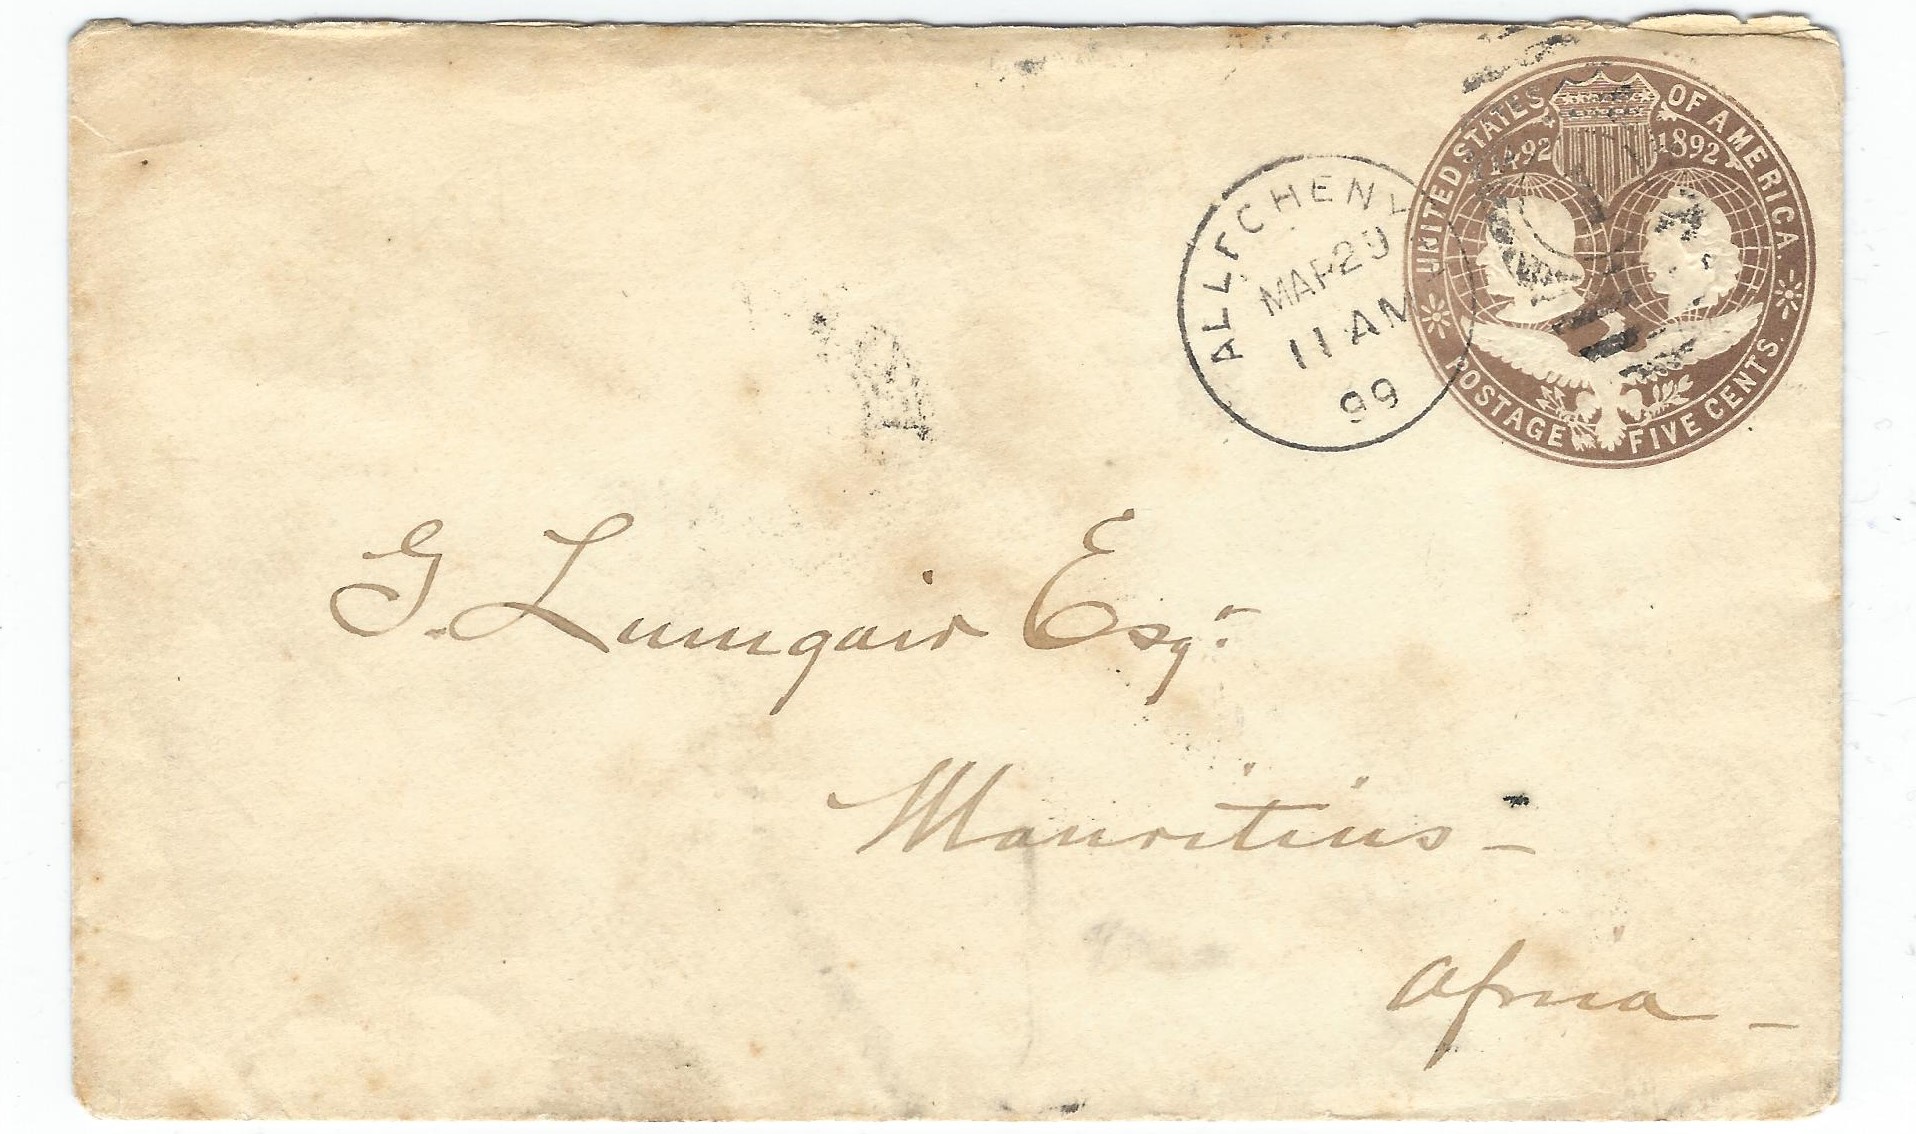 UNITED STATES OF AMERICA.
1492 1892
POSTAGE FIVE CENTS.
ALLEGHENY
MAR 29
11 AM
99
G. Lumgair Esqr.
Mauritius -
Africa -